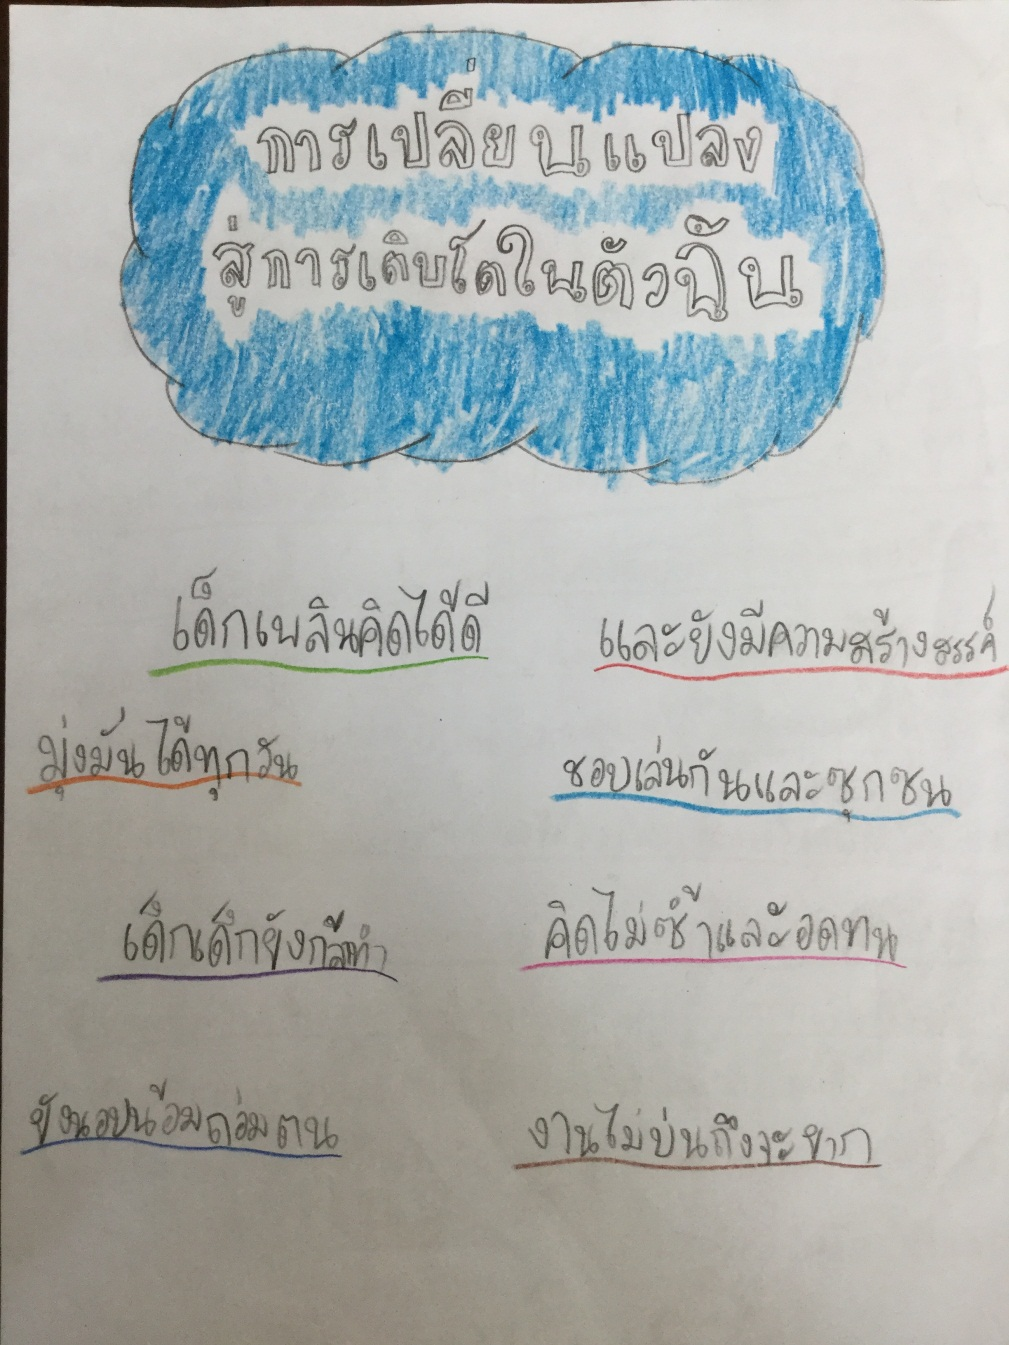 การเปลี่ยนแปลง
สู่การเติบโตในตัวฉัน
เด็กเพลินคิดได้ดี และยังมีความสร้างสรรค์
มุ่งมั่นได้ทุกวัน ชอบเล่นกันและซุกซน
เด็กเด็กยังกล้าทำ คิดไม่ซ้ำและอดทน
ยังนอบน้อมถ่อมตน งานไม่บ่นถึงจะยาก